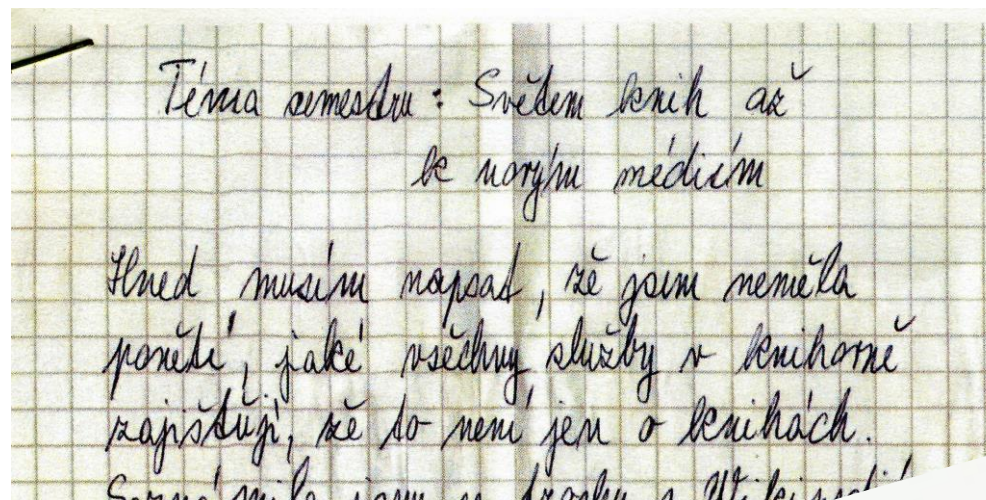 Téma semestru: Světem knih až
k novým médiím
Hned musím napsat, že jsem neměla
ponětí, jaké všechny služby v knihovně
zajištůjí, že to není jen o knihách.
Seznámila jsem se trochu s